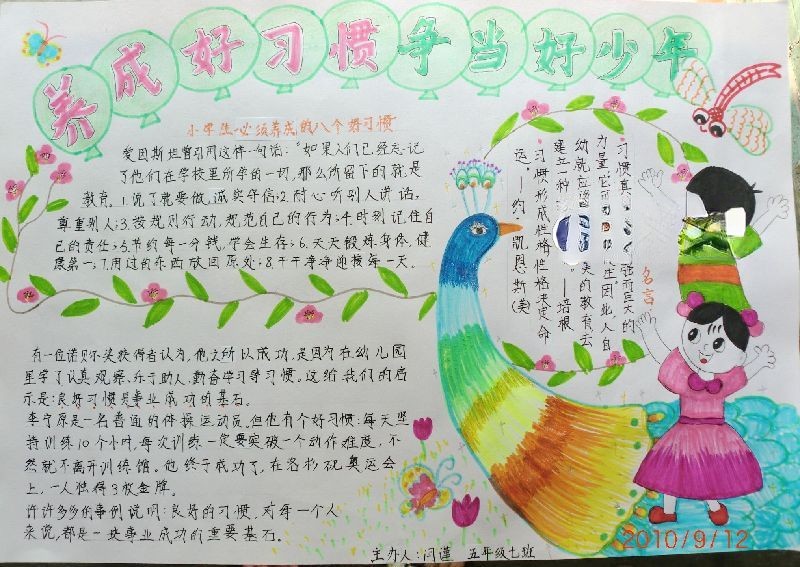 养成好习惯争当好少年
小学生必须养成的八个好习惯
爱因斯坦曾引用这样一句话:“如果人们已经忘记
了他们在学校里所学的一切,那么所留下的就是
教育。1.说了就要做,诚实守信;2.耐心听别人讲话,
尊重别人;3.按规则行动,规范自己的行为;4.时刻记住自
己的责任;5.节约每一分钱,学会生存;6.天天锻炼身体,健
康第一;7.用过的东西放回原处;8.干干净净迎接每一天。
习惯真 强而巨大的
力量它可 庄因此,人自
幼就应 美的教育去
建立一种 。—培根
习惯形成性格性格决定命
运。—约 凯恩斯(美)
名言
有一位诺贝尔奖获得者认为,他之所以成功,是因为在幼儿园
里学了认真观察、乐于助人、勤奋学习等习惯。这给我们的启
示是:良好习惯是事业成功的基石。
李宁原是一名普通的体操运动员。但他有个好习惯:每天坚
持训练10个小时,每次训练一定要突破一个动作难度,不
然就不离开训练馆。他终于成功了,在洛杉矶奥运会
上,一人独得3枚金牌。
许许多多的事例说明:良好的习惯,对每一个人
来说,都是一块事业成功的重要基石。
主办人:闫谨 五年级七班
2010/9/12